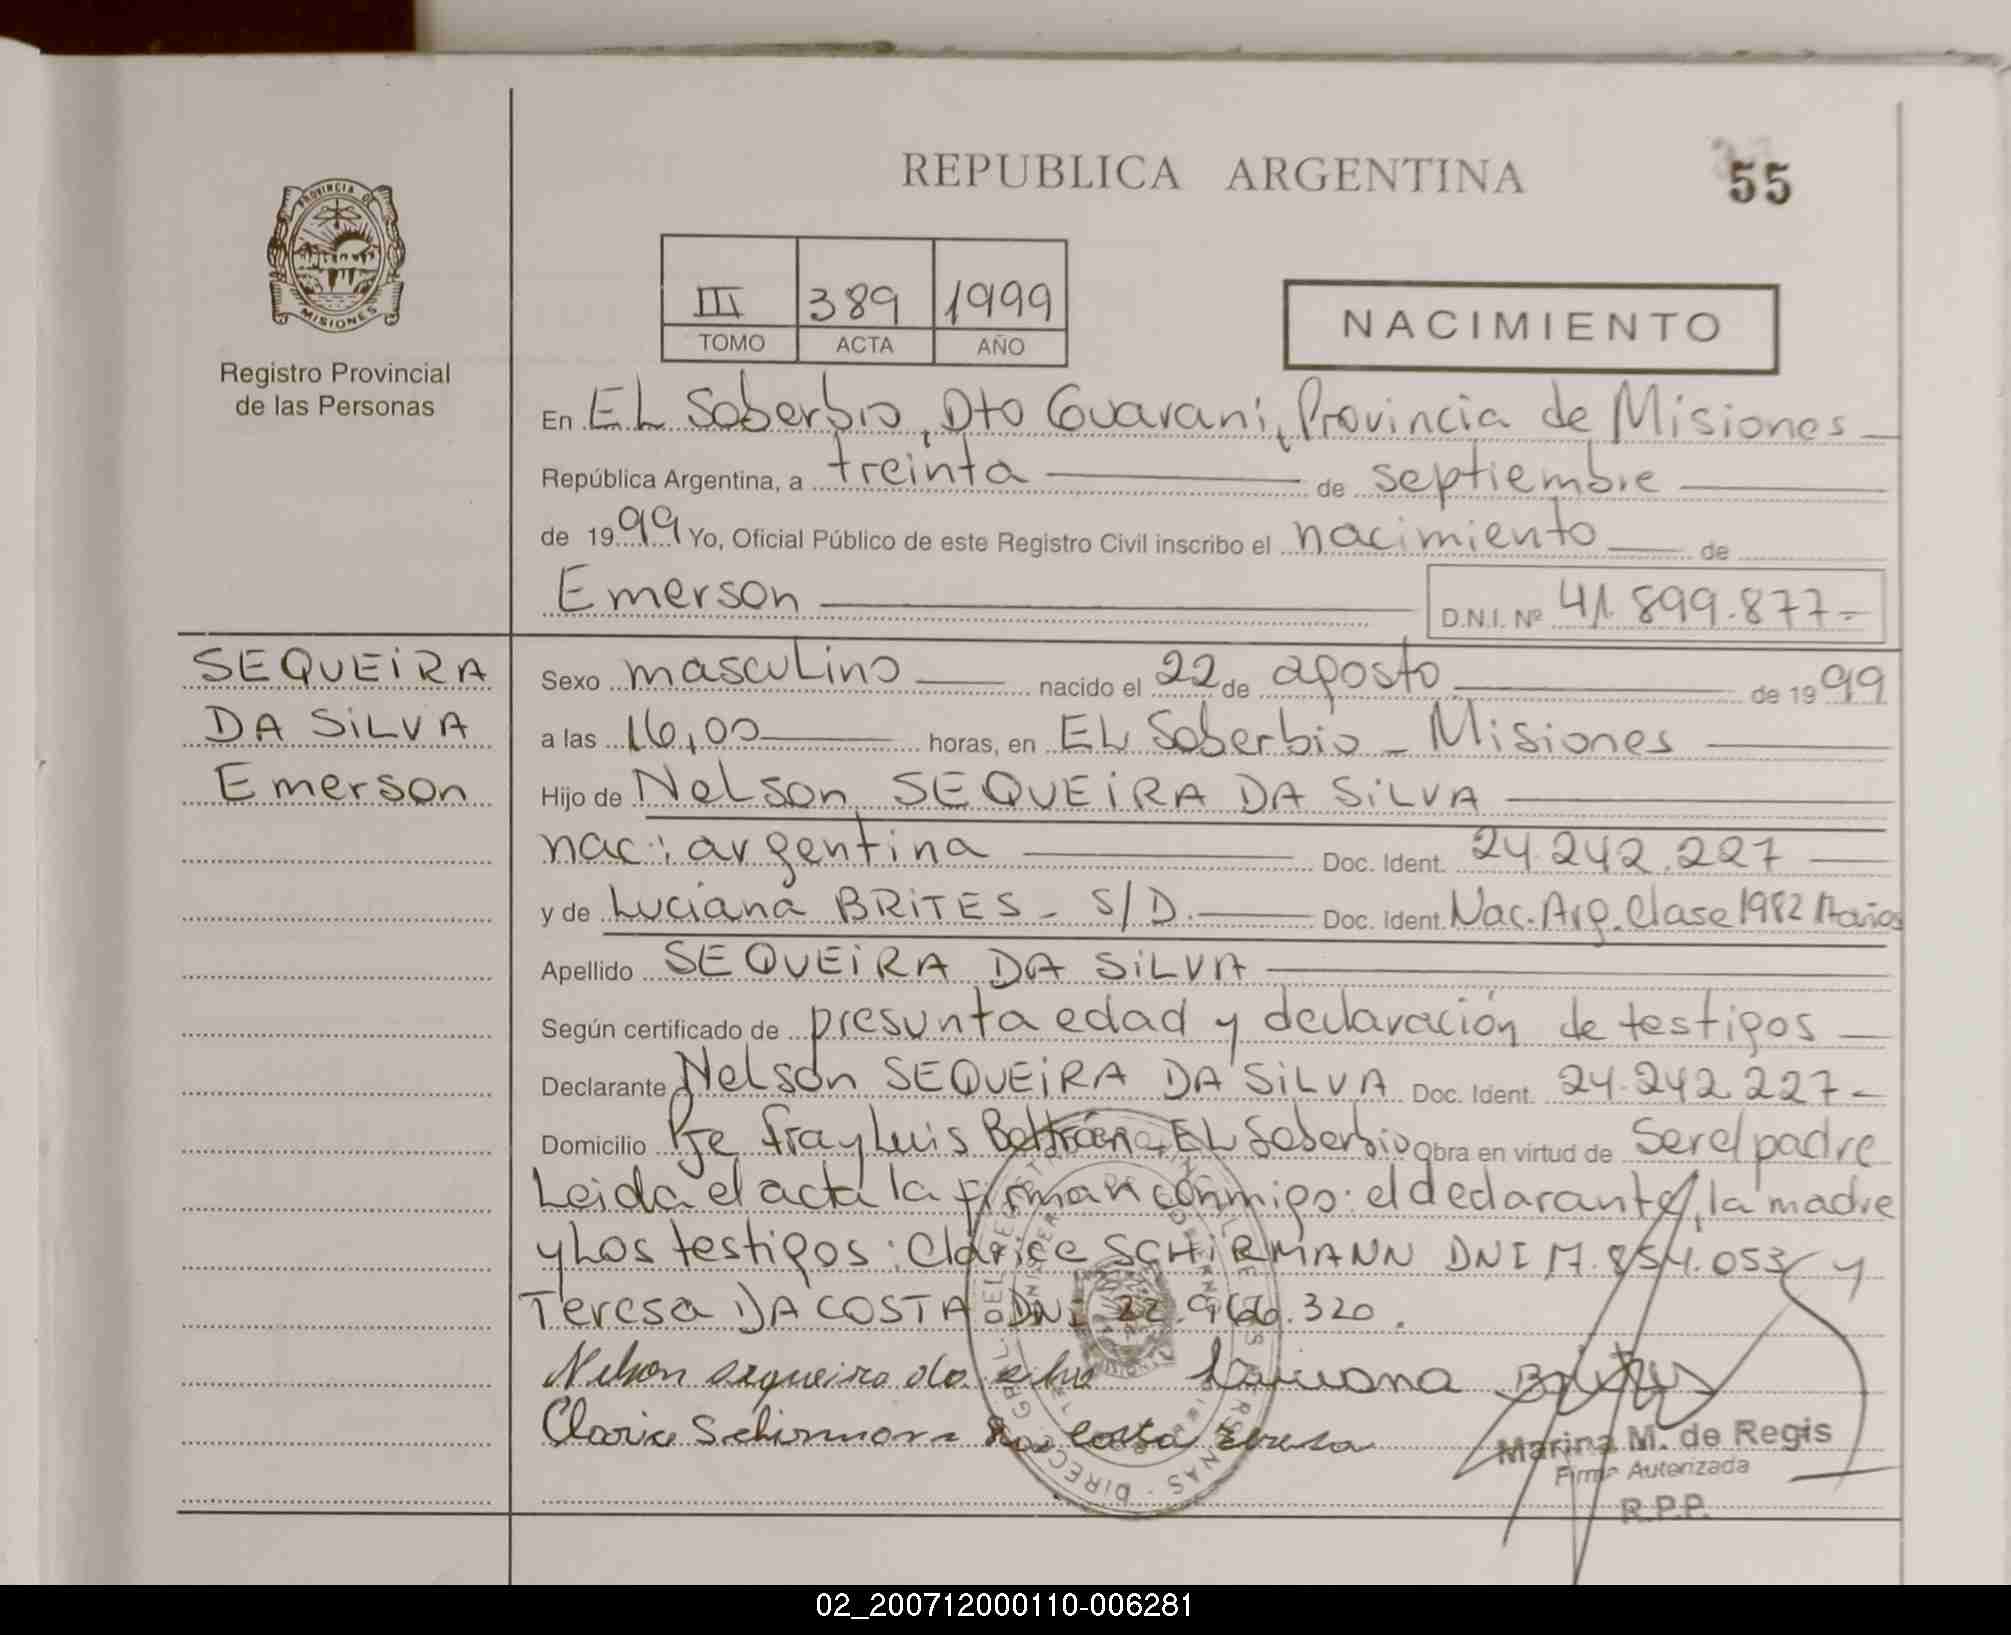 REPUBLICA ARGENTINA
55
PROVINCIA DE
MISIONES
Registro Provincial
de las Personas
III 389 1999
TOMO ACTA AÑO
NACIMIENTO
En EL Soberbio, Dto Guaraní, Provincia de Misiones
República Argentina, a treinta de septiembre
de 1999 Yo, Oficial Público de este Registro Civil inscribo el nacimiento de
Emerson D.N.I. Nº 41.899.877-
SEQUEIRA
DA SILVA
Emerson
Sexo masculino nacido el 22 de agosto de 1999
a las 16,00 horas, en EL Soberbio - Misiones
Hijo de Nelson SEQUEIRA DA SILVA
nac: argentina Doc. Ident. 24.242.227
y de Luciana BRITES - S/D. Doc. Ident. Nac. Arg. Clase 1982 17 años
Apellido SEQUEIRA DA SILVA
Según certificado de presunta edad y declaración de testigos
Declarante Nelson SEQUEIRA DA SILVA Doc. Ident. 24.242.227-
Domicilio Pje Fray Luis Beltrán, EL Soberbio Obra en virtud de Ser el padre
Leida el acta la firman conmigo: el declarante, la madre
y Los testigos: Clarice SCHIRMANN DNI 17.854.053 y
Teresa DA COSTA DNI 22.966.320.
Nelson sequeira da silva Luciana Brites
Clarice Schirmann Da Costa Teresa
Marina M. de Regis
Firma Autorizada
R.P.P.
02_200712000110-006281